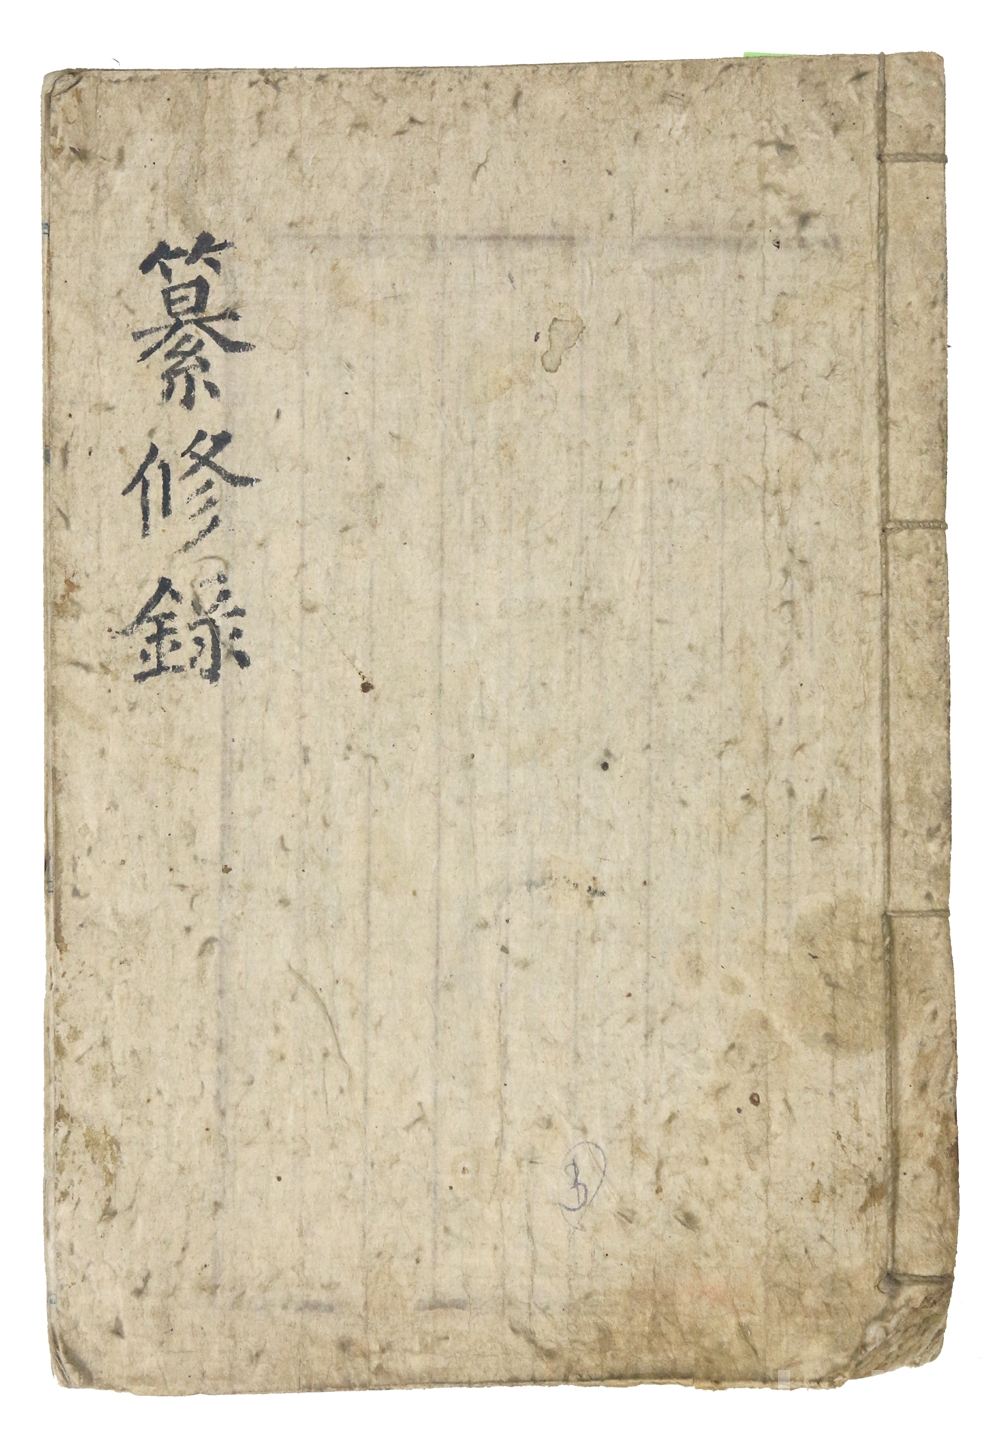 纂修錄
3